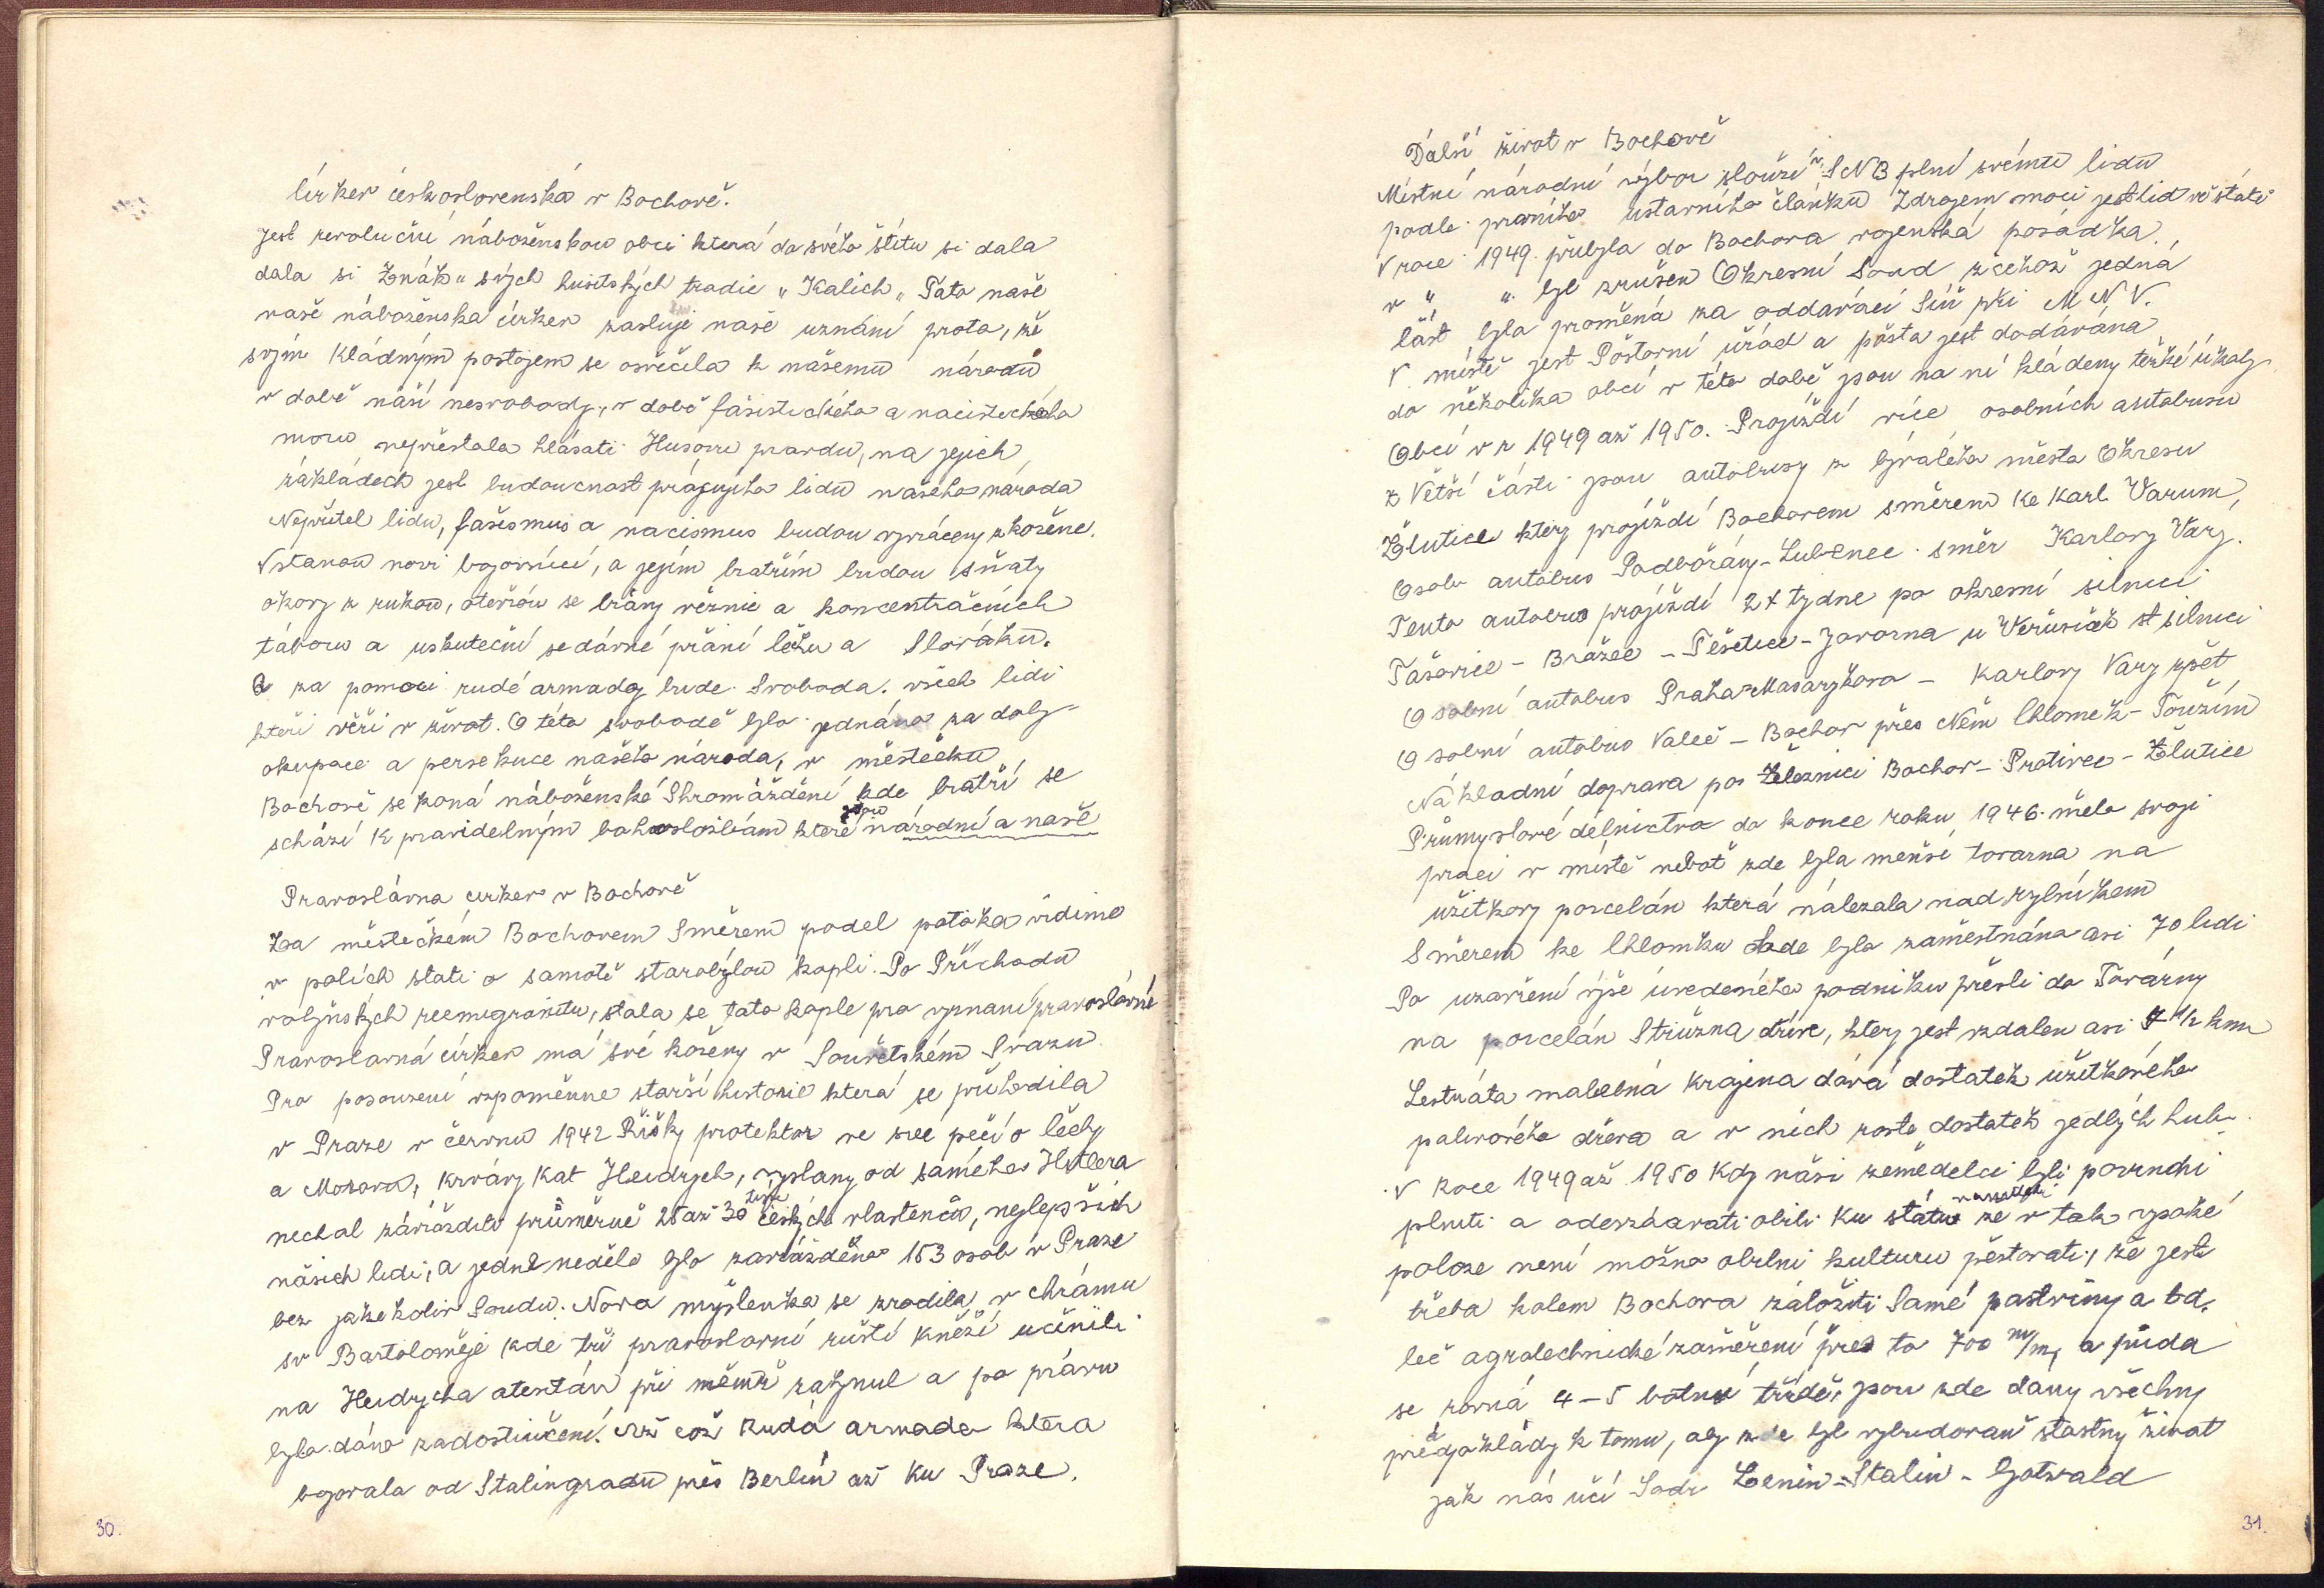 Církev československá v Bochově.
Jest revoluční náboženskou obcí která do svého štítu si dala
dala si Znák„ svých husitských tradic „Kalich„ Táto naše
naše náboženská církev zasluji naše uznání proto, že
svým Kládným postojem se osvěčila k našemu národů
v době náší nesvobody, v době fašistického a nacistického
moru nepřestala hlásati Husovu pravdu, na jejich
základech jest budoucnost pracujicho lidu našeho národa
Nepřítel lidu, fašismus a nacismus budou vyvráceny z kořene.
Vstanou novi bojovníci, a jejím bratřím budou sňaty
okovy z rukou, otevřou se brány věznic a koncentračních
táborů a uskuteční se dávné přání Čechu a Slováku.
a za pomoci rudé armady bude Svoboda. všech lidi
kteři věři v život. O této svobodě bylo jednáno za doby
okupace a persekuce našeho národa, v městečku
Bochově se koná náboženské Shromáždění kde bratří se
scházi k pravidelným bohoslužbám které jsou národní a naše
Pravoslávna církev v Bochově
Za městečkem Bochovem Směrem podel potoka vidíme
v polích státi o samotě starobylou kapli. Po Příchodu
volyňských reemigrántu, stala se tato kaple pro vyznani pravoslávné
Pravoslavná církev má své kořeny v Souvětském Svazu
Pro posouzení vzpomeňme starší historie která se přihodila
v Praze v červnu 1942 Říšky protektor ve své péči o Čechy
a Morava, krvávy Kat Heidrych, vyslany od saméhe Hitlera
nechal závraždit průměrně 25 až 30 českých vlastenců, nejlepších
našich lidi, a jedné neděle bylo zavražděno 153 osob v Praze
bez jakekoliv Soudu. Nova myšlenka se zrodila v chrámu
sv Bartoloměje kde tři pravoslavní rusti kněží učinili
na Heidrycha atentát při němž zahynul a po právu
bylo dáno zadostiučení. Než což Rudá armada která
bojovala od Stalingradu přes Berlín až ku Praze.
30.
Další život v Bochově
Místní národní výbor slouží i SNB plní svému lidu
podle prvního ustavního článku Zdrojem moci jest lid ve státi
V roce 1949 přibyla do Bochova vojenská posádka.
v „ „ byl zrušen Okresní Soud z čehož jedna
část byla proměná za oddavácí Síň při M N V.
V místě jest Poštovní úřad a pošta jest dodávána
do několika obcí v této době jsou na ní kládeny těžké úkoly
Obcí v r 1949 až 1950. Projíždí více osobních autobusů
z Větší části jsou autobusy z bývalého města Okresu
Žlutice ktery projíždí Bochovem směrem ke Karl. Varum,
Osob autobus Podbořány-Lubenec směr Karlovy Vary.
Tento autobus projíždí 2x tydne po okresní silnici
Tašovice - Bražec - Těšetice - Javorna u Verušiček st silnici
Osobní autobus Praha Masarykova - Karlovy Vary zpět
Osobní autobus Valeč - Bochov přes Něm Chlomek - Toužim
Nákladní doprava po železnici Bochov - Protivec - Žlutice
Průmyslové dělnictvo do konce roku 1946 mělo svoji
praci v místě neboť zde byla menši tovarna na
užitkovy porcelán která nálezala nad rybníkem
Směrem ke Chlomku Zde byla zaměstnána asi 70 lidi
Po uzavření výše uvedeného podniku přešli do Továrny
na porcelán Stružna dříve, ktery jest vzdalen asi 7 1/2 km
Lestnáta malebná krajina dává dostatek užitkového
palivového dřeva a v nich roste dostatek jedlých hub
V Roce 1949 až 1950 Kdy náši zemědelci byli povinni
plniti a odevzdavati obilí ku státu že v tak vysoké
poloze není možno obilni kulturu pěstovati, že jest
třeba kolem Bochova záložiti Samé pastviny a td,
leč agrotechnické zaměření přes to 700 m/m, a půda
se rovná 4-5 botni třídě, jsou zde dany všechny
předpoklady k tomu, aby zde byl vybudovan stastny život
jak nás učí Sodr Lenin - Stalin - Gotwald
31.